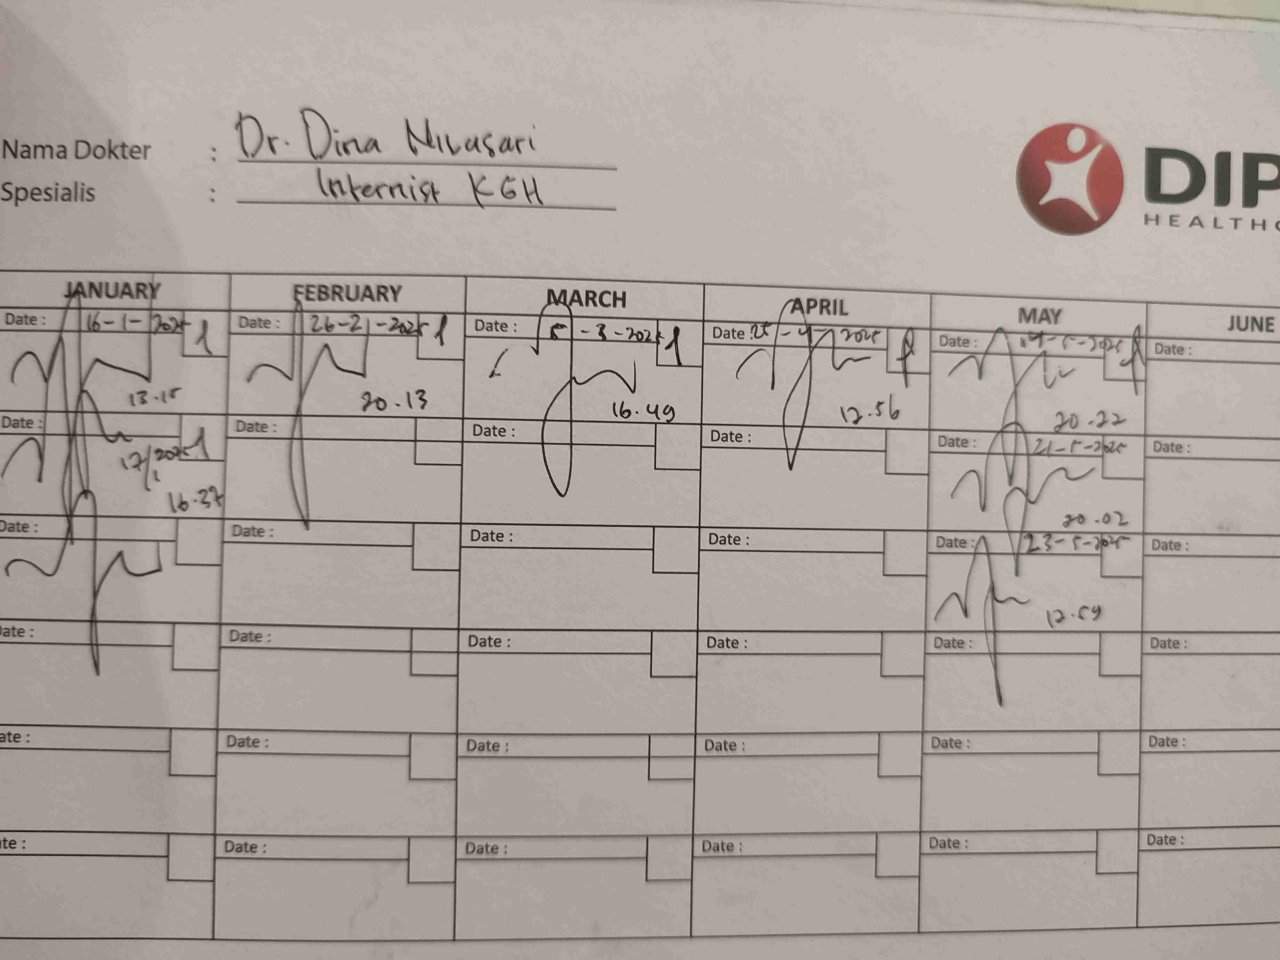 Nama Dokter : Dr. Dina Nilasari
Spesialis : Internist KGH
DIP
HEALTHC
JANUARY FEBRUARY MARCH APRIL MAY JUNE
Date : 16-1-2025 1 Date : 26-2-2025 1 Date : 5-3-2025 1 Date : 25-4-2025 Date : 19-5-2025 Date :
13.15 20.13 16.49 12.56 20.22
Date : 1 Date : Date : Date : Date : 21-5-2025 Date :
17/1 2025
16.37 20.02
Date : Date : Date : Date : Date : 23-5-2025 Date :
12.59
Date : Date : Date : Date : Date : Date :
ate : Date : Date : Date : Date : Date :
te : Date : Date : Date : Date : Date :